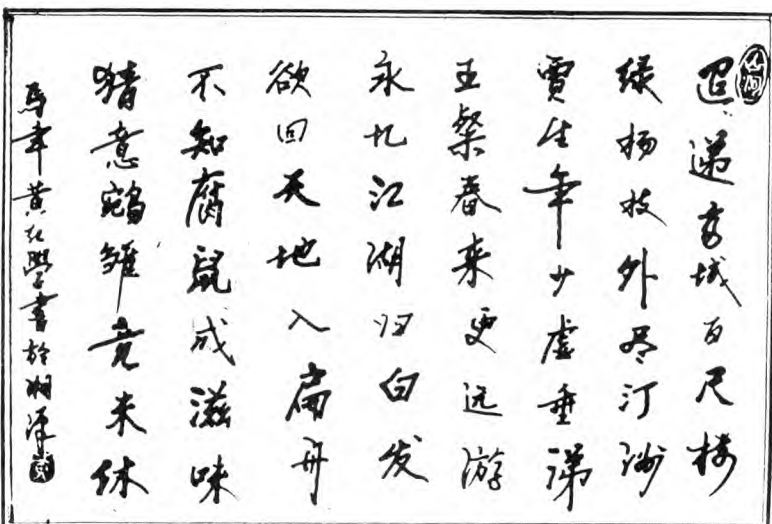 迢递高城百尺楼
绿杨枝外尽汀洲
賈生年少虚垂涕
王粲春来更远游
永忆江湖归白发
欲回天地入扁舟
不知腐鼠成滋味
猜意鹓雏竟未休
馬年黄學書於湘潭